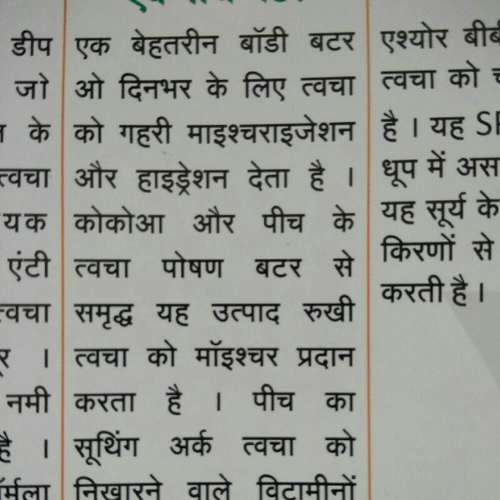 डीप
जो
के
त्वचा
यक
एंटी
त्वचा
।
नमी
है ।
एक बेहतरीन बॉडी बटर
ओ दिनभर के लिए त्वचा
को गहरी माइश्चराइजेशन
और हाइड्रेशन देता है ।
कोकोआ और पीच के
त्वचा पोषण बटर से
समृद्ध यह उत्पाद रुखी
त्वचा को मॉइश्चर प्रदान
करता है । पीच का
सूथिंग अर्क त्वचा को
निखारने वाले विटामीनों
एश्योर
त्वचा को
है । यह
धूप में
यह सूर्य के
किरणों से
करती है ।